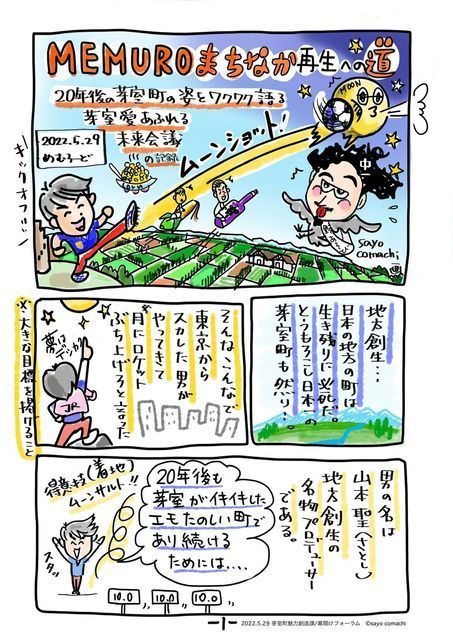 MEMUROまちなか再生への道
20年後の芽室町の姿をワクワク語る
芽室愛あふれる
未来会議
の記録
2022.5.29
めむろーど
キックオフッ
ムーンショット!
MOON
sayo
comachi
地方創生…
日本の地方の町は
生き残りに必死だ。
とうもろこし日本一の
芽室町も然り…。
そんなこんなで
東京から
スカした男が
やってきて
月にロケット
ぶち上げろと言った
夢はデッカく
JR
※大きな目標を掲げること
男の名は
山本聖(さとし)
地方創生の
名物プロデューサー
である。
20年後も
芽室がイキイキした
エモたのしい町で
あり続ける
ためには….
得意技(着地)
ムーンサルト!!
スタッ
10.0
10.0
10.0
-1-
2022.5.29 芽室町魅力創造課/幕開けフォーラム ©sayo comachi